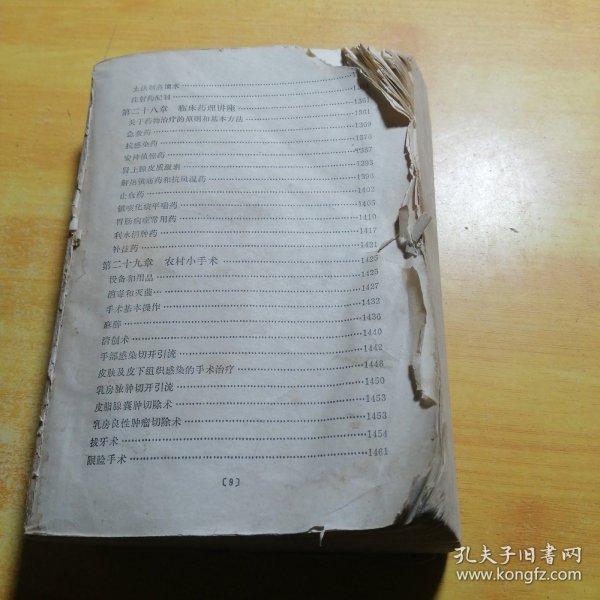 土法制蒸馏水
注射药配制
第二十八章 临床药理讲座 1361
关于药物治疗的原则和基本方法 1361
急救药 1369
抗感染药 1376
安神镇惊药 1387
肾上腺皮质激素 1393
解热镇痛药和抗风湿药 1396
止血药 1402
镇咳化痰平喘药 1405
胃肠病症常用药 1410
利水消肿药 1417
补益药 1421
第二十九章 农村小手术 1425
设备和用品 1425
消毒和灭菌 1427
手术基本操作 1432
麻醉 1436
清创术 1440
手部感染切开引流 1442
皮肤及皮下组织感染的手术治疗 1446
乳房脓肿切开引流 1450
皮脂腺囊肿切除术 1453
乳房良性肿瘤切除术 1453
拔牙术 1454
眼睑手术 1461
〔9〕
孔夫子旧书网
www.kongfz.com